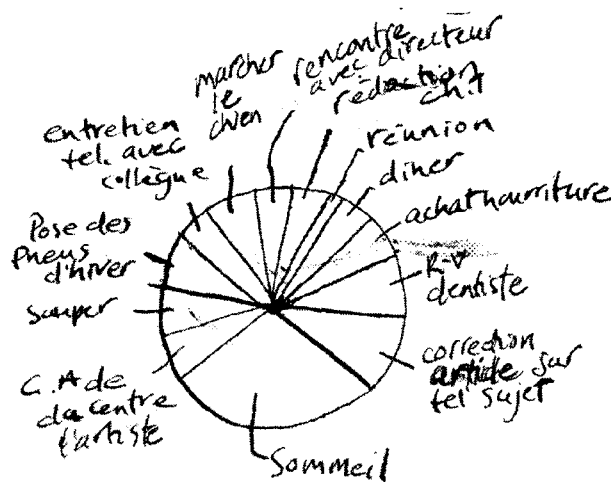 marcher
le
chien
rencontre
avec directeur
rédaction
ch.1
réunion
diner
achat nourriture
R-V
dentiste
correction
article sur
tel sujet
Sommeil
C.A de
centre
d'artiste
souper
Pose des
pneus
d'hiver
entretien
tel. avec
collègue